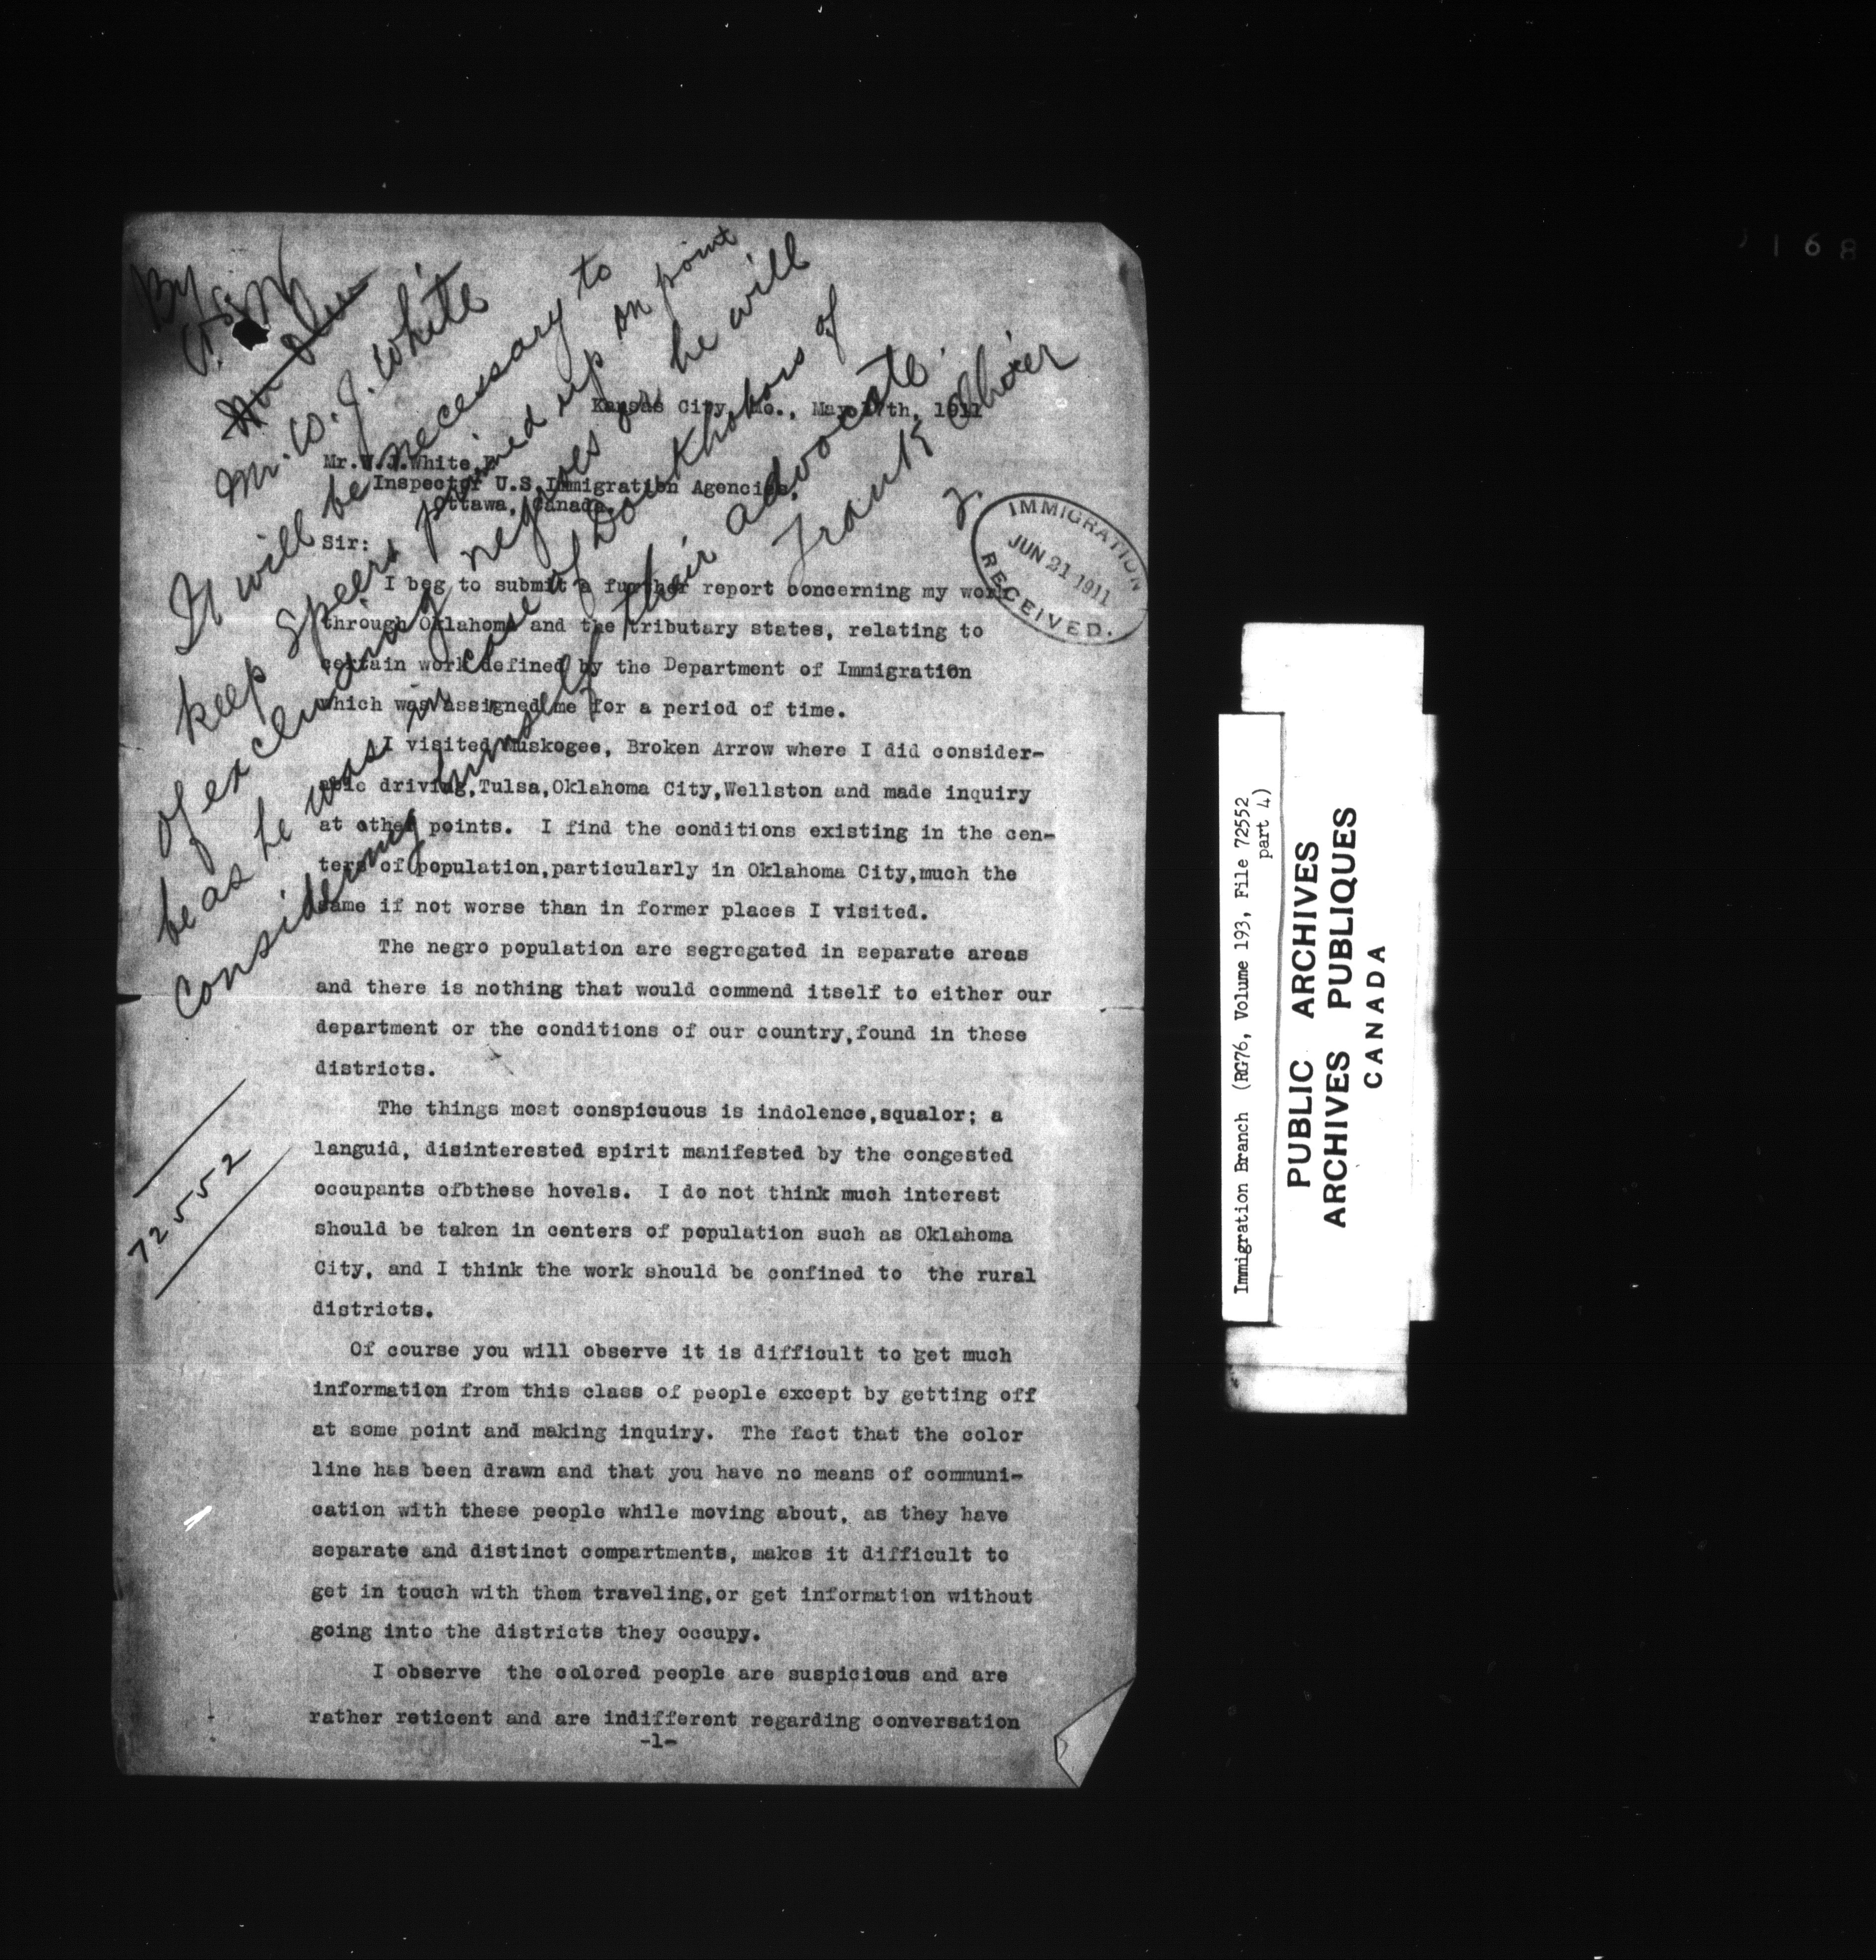 By
Mr. W. J. White
It will be necessary to
keep Speers primed up on point
of excluding negroes or he will
be as he was in case of Doukhobors of
Considering himself their advocate.
Frank Oliver
Kansas City, Mo., May 17th, 1911
2
Mr.W.J.White,
Inspector U.S.Immigration Agencies,
Ottawa, Canada.
IMMIGRATION
JUN 21 1911
RECEIVED.
Sir:
I beg to submit a further report concerning my work
through Oklahoma and the tributary states, relating to
certain work defined by the Department of Immigration
which was assigned me for a period of time.
I visited Muskogee, Broken Arrow where I did consider-
able driving,Tulsa,Oklahoma City,Wellston and made inquiry
at other points. I find the conditions existing in the cen-
ters of population,particularly in Oklahoma City,much the
same if not worse than in former places I visited.
The negro population are segregated in separate areas
and there is nothing that would commend itself to either our
department or the conditions of our country,found in these
districts.
The things most conspicuous is indolence,squalor; a
languid, disinterested spirit manifested by the congested
occupants ofbthese hovels. I do not think much interest
should be taken in centers of population such as Oklahoma
City, and I think the work should be confined to the rural
districts.
72552
Of course you will observe it is difficult to get much
information from this class of people except by getting off
at some point and making inquiry. The fact that the color
line has been drawn and that you have no means of communi-
cation with these people while moving about, as they have
separate and distinct compartments, makes it difficult to
get in touch with them traveling,or get information without
going into the districts they occupy.
I observe the colored people are suspicious and are
rather reticent and are indifferent regarding conversation
-1-
Immigration Branch (RG76, Volume 193, File 72552
part 4)
PUBLIC ARCHIVES
ARCHIVES PUBLIQUES
CANADA
168